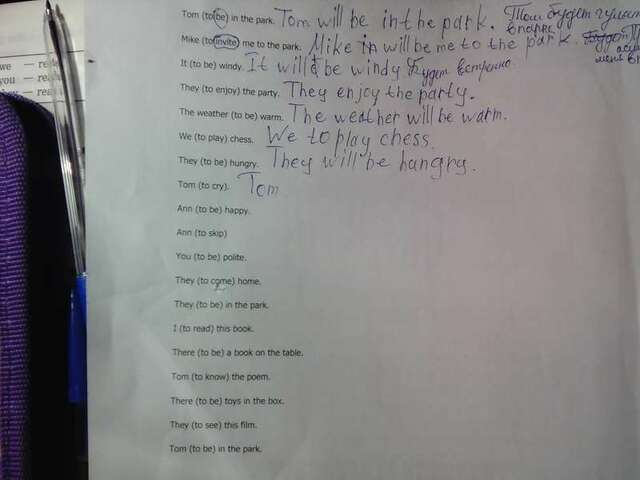 Tom (to be) in the park. Tom will be in the park. Том будет
в парке
Mike (to invite) me to the park. Mike in will be me to the park. Будет
It (to be) windy. It will be windy Будет ветренно.
They (to enjoy) the party. They enjoy the party.
The weather (to be) warm. The weather will be warm.
We (to play) chess. We to play chess.
They (to be) hungry. They will be hangry.
Tom (to cry). Tom
Ann (to be) happy.
Ann (to skip)
You (to be) polite.
They (to come) home.
They (to be) in the park.
I (to read) this book.
There (to be) a book on the table.
Tom (to know) the poem.
There (to be) toys in the box.
They (to see) this film.
Tom (to be) in the park.
we —
you —